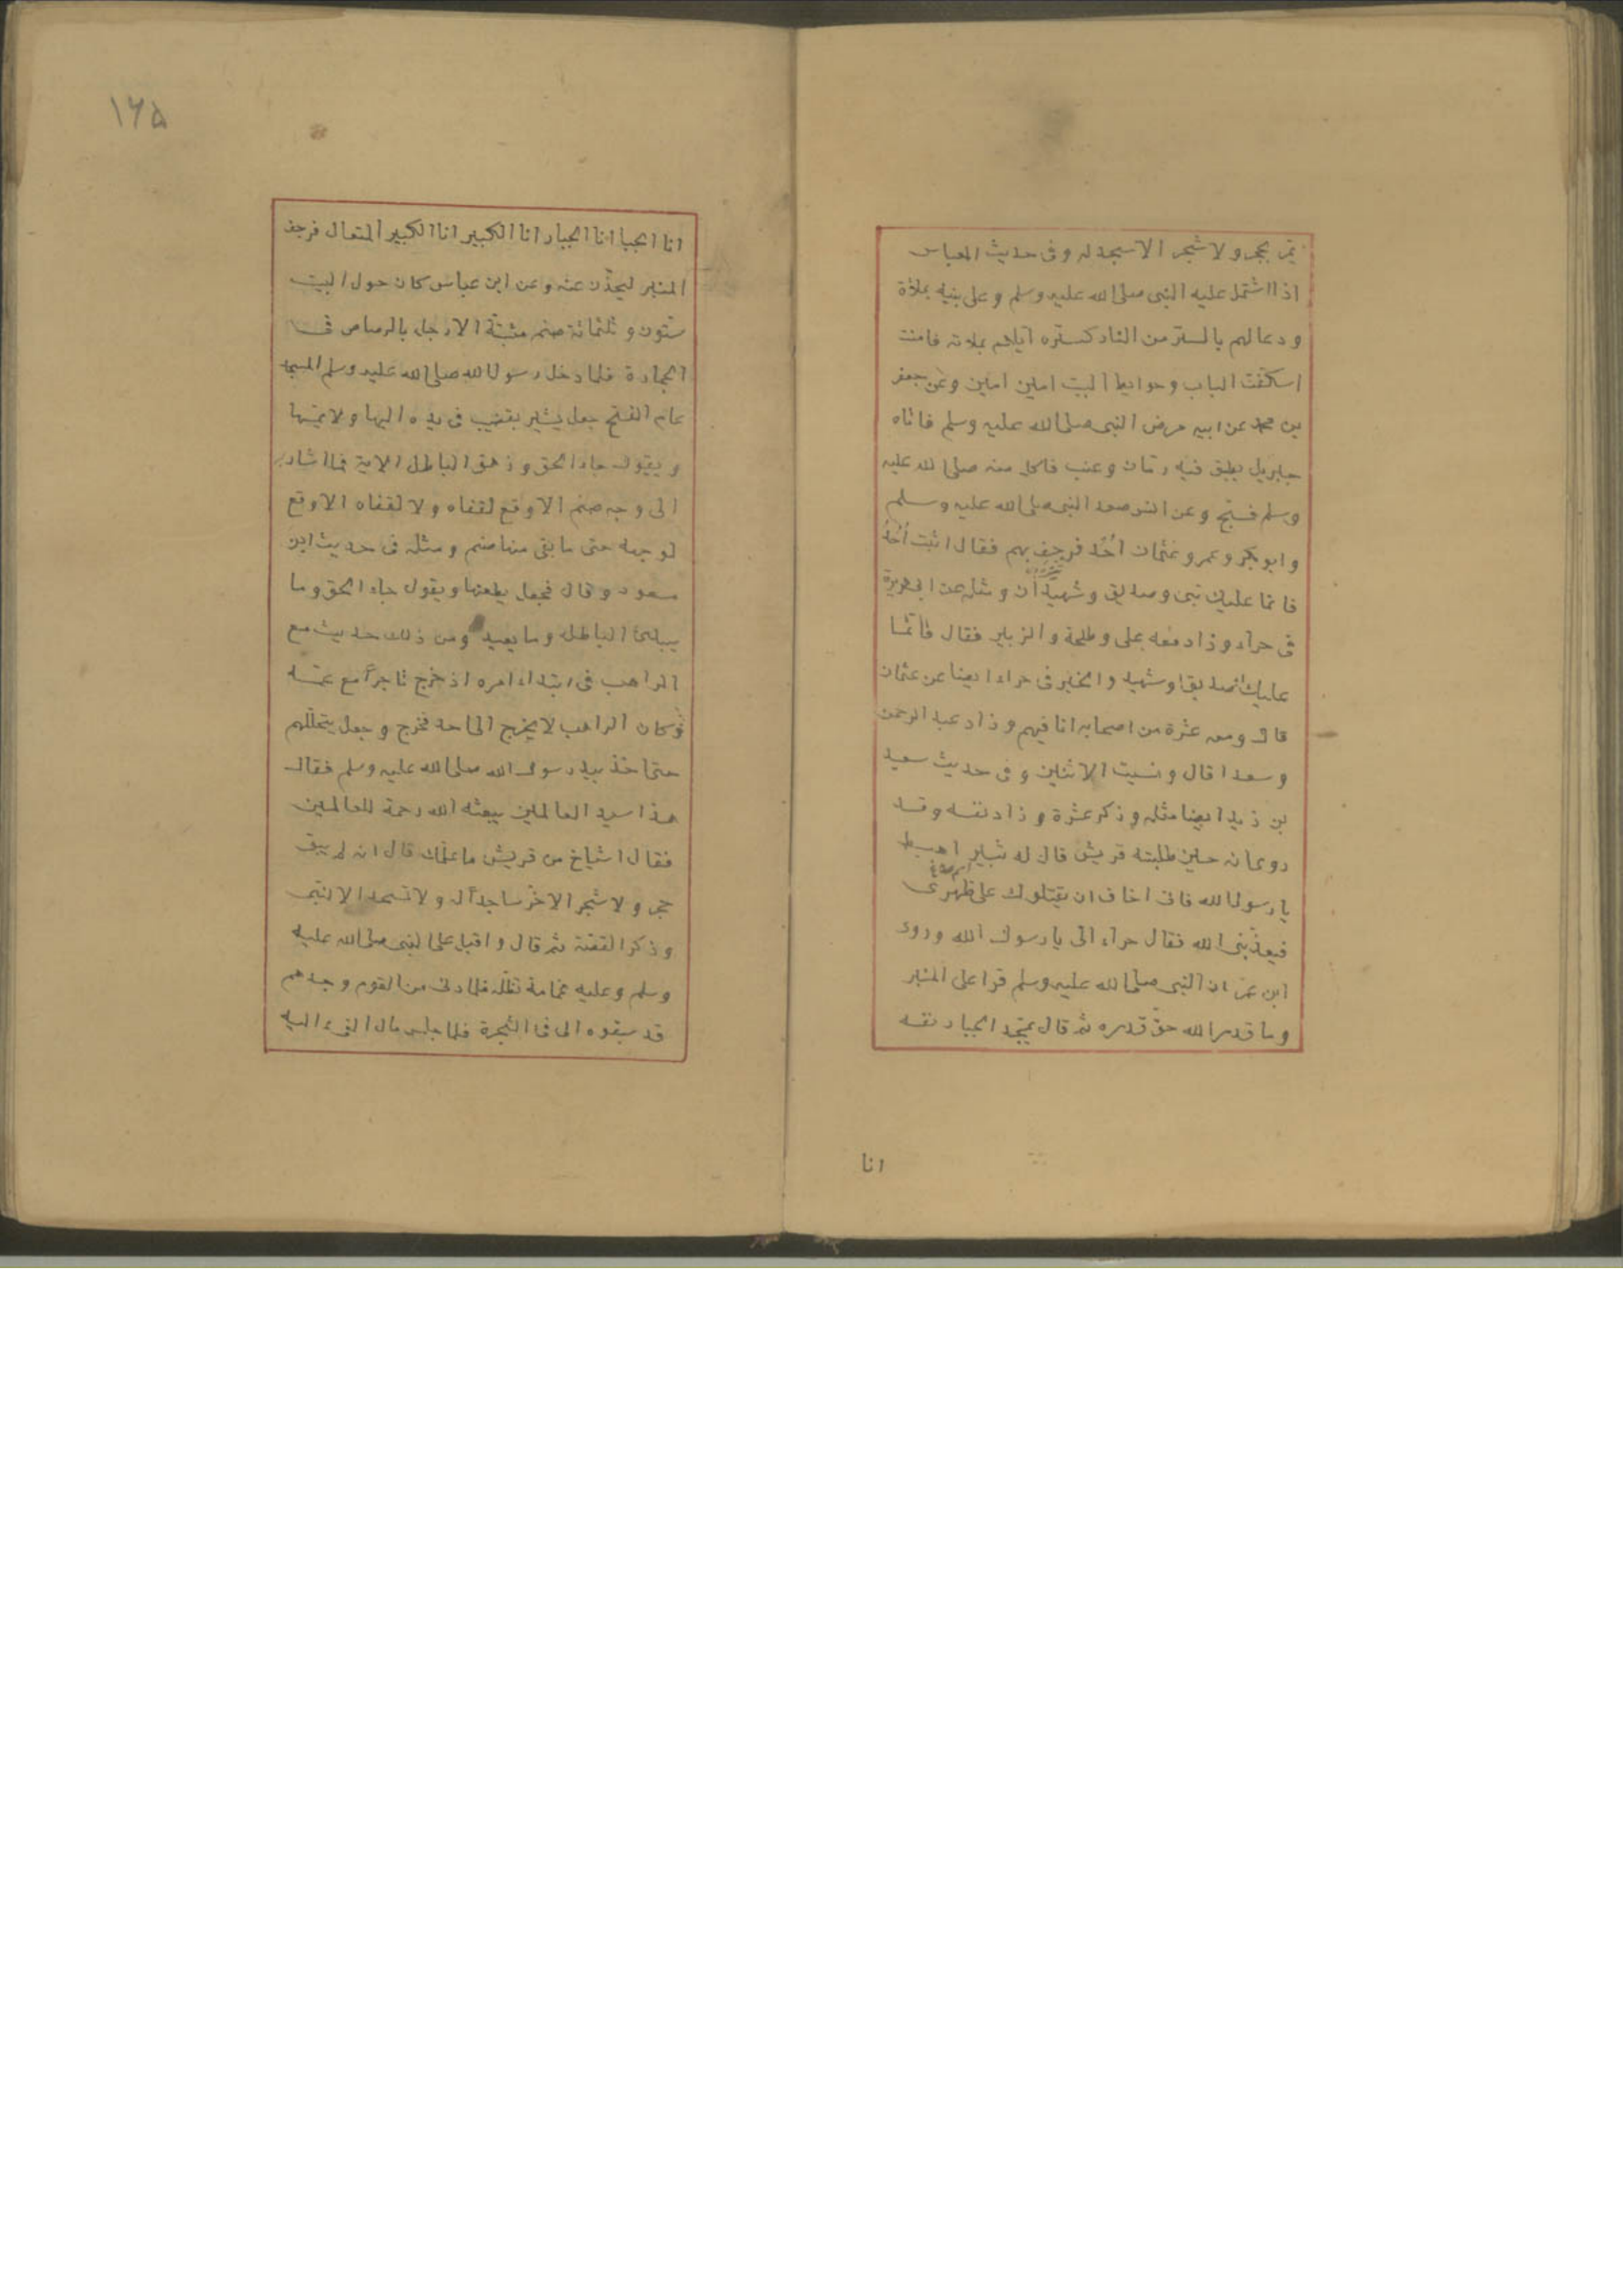 يمر بحجر ولا شجر الا سجد له وفى حديث العباس
اذا اشتمل عليه النبى صلى الله عليه وسلم وعلى بنيه بملاة
ودعا لهم بالستر من النار كستره اياهم بملاته فامنت
اسكفت الباب وحوايط البيت امين امين وعن جعفر
بن محمد عن ابيه مرض النبى صلى الله عليه وسلم فاتاه
جبريل بطبق فيه رمان وعنب فاكل منه صلى الله عليه
وسلم فسبح وعن انس صعد النبى صلى الله عليه وسلم
وابو بكر وعمر وعثمان اُحُد فرجف بهم فقال اثبت اُحُدُ
فانما عليك نبى وصديق وشهيدان ومثله عن ابى هريرة
فى حراء وزاد معه على وطلحة والزبير فقال فانما
عليك صديق او شهيد والخبر فى حراء ايضا عن عثمان
قال ومعه عشرة من اصحابه انا فيهم وزاد عبد الرحمن
وسعدا قال ونسيت الاثنين وفى حديث سعيد
بن زيد ايضا مثله وذكر عشرة وزاد نفسه وقد
روى انه حين طلبته قريش قال له ثبير اهبط
يا رسول الله فانى اخاف ان يقتلوك على ظهرى
فيعذبنى الله فقال حراء الى يا رسول الله وروى
ابن عمر ان النبى صلى الله عليه وسلم قرا على المنبر
وما قدروا الله حق قدره ثم قال يمجد الجبار نفسه
انا
١٦٥
انا الجبا انا الجبار انا الكبير انا الكبير المتعال فرجف
المنبر ليخرّن عنه وعن ابن عباس كان حول البيت
ستون وثلثمائة صنم مثبتة الارجل بالرصاص فى
الحجارة فلما دخل رسول الله صلى الله عليه وسلم المسجد
عام الفتح جعل يشير بقضيب فى يده اليها ولا يمسها
ويقول جاء الحق وزهق الباطل الاية فما اشار
الى وجه صنم الا وقع لقفاه ولا لقفاه الا وقع
لوجهه حتى ما بقى منها صنم ومثله فى حديث ابن
مسعود وقال فجعل يطعنها ويقول جاء الحق وما
يبدئ الباطل وما يعيد ومن ذلك حديثه مع
الراهب فى ابتداء امره اذ خرج تاجراً مع عمه
وكان الراهب لا يخرج الى احد فخرج وجعل يتخللهم
حتى اخذ بيد رسول الله صلى الله عليه وسلم فقال
هذا سيد العالمين يبعثه الله رحمة للعالمين
فقال اشياخ من قريش ما علمك قال انه لم يبق
حجر ولا شجر الا خر ساجداً له ولا تسجد الا لنبى
وذكر القصة ثم قال واقبل على النبى صلى الله عليه
وسلم وعليه غمامة تظله فلما دنى من القوم وجدهم
قد سبقوه الى فئ الشجرة فلما جلس مال الفئ اليه